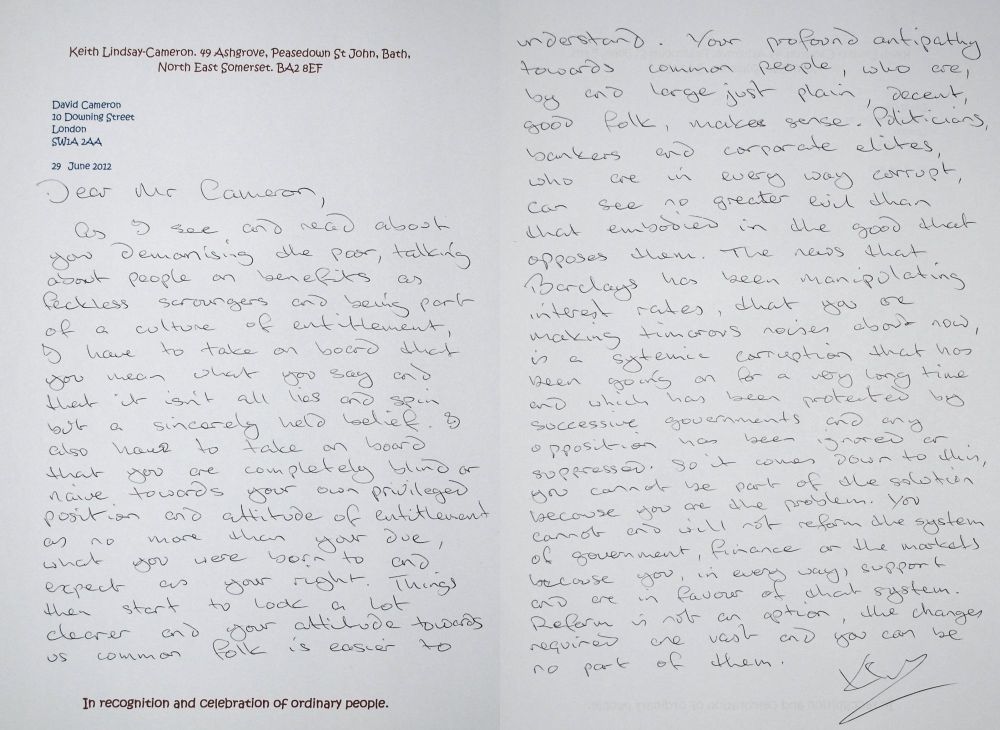 Keith Lindsay-Cameron. 49 Ashgrove, Peasedown St John, Bath,
North East Somerset. BA2 8EF
David Cameron
10 Downing Street
London
SW1A 2AA
29 June 2012
Dear Mr Cameron,
As I see and read about
you demonising the poor, talking
about people on benefits as
feckless scroungers and being part
of a culture of entitlement,
I have to take on board that
you mean what you say and
that it isn't all lies and spin
but a sincerely held belief. I
also have to take on board
that you are completely blind or
naive towards your own privileged
position and attitude of entitlement
as no more than your due,
what you were born to and
expect as your right. Things
then start to look a lot
clearer and your attitude towards
us common folk is easier to
In recognition and celebration of ordinary people.
understand. Your profound antipathy
towards common people, who are,
by and large just plain, decent,
good folk, makes sense. Politicians,
bankers and corporate elites,
who are in every way corrupt,
can see no greater evil than
that embodied in the good that
opposes them. The news that
Barclays has been manipulating
interest rates, that you are
making timorous noises about now,
is a sytemic corruption that has
been going on for a very long time
and which has been protected by
successive governments and any
opposition has been ignored or
suppressed. So it comes down to this,
you cannot be part of the solution
because you are the problem. You
cannot and will not reform the system
of government, finance or the markets
because you, in every way, support
and are in favour of that system.
Reform is not an option, the changes
required are vast and you can be
no part of them.